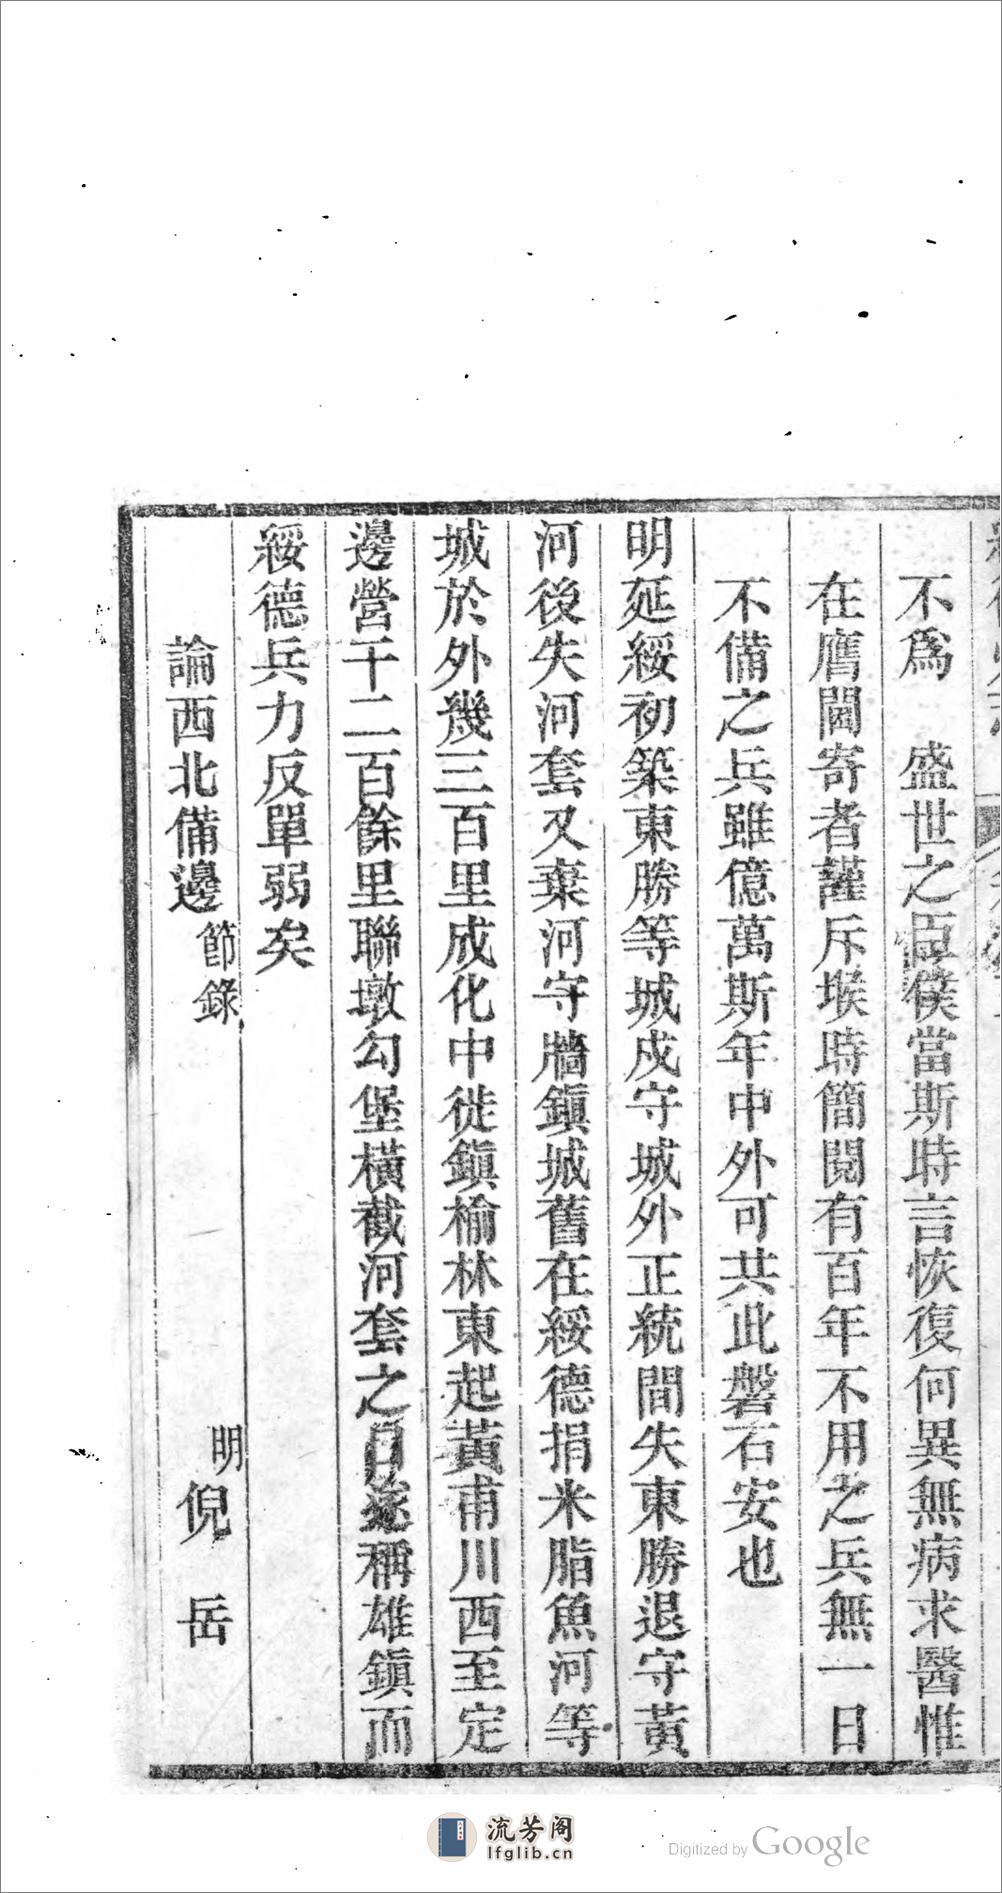 不爲　盛世之臣僕當斯時言恢復何異無病求醫惟
在膺閫寄者謹斥堠時簡閱有百年不用之兵無一日
不備之兵雖億萬斯年中外可共此磐石安也
明延綏初築東勝等城戍守城外正統間失東勝退守黃
河後失河套又棄河守牆鎮城舊在綏德捐米脂魚河等
城於外幾三百里成化中徙鎮榆林東起黃甫川西至定
邊營千二百餘里聯墩勾堡橫截河套之口遂稱雄鎮而
綏德兵力反單弱矣
論西北備邊節錄　明倪岳
流芳阁
lfglib.cn
Digitized by Google